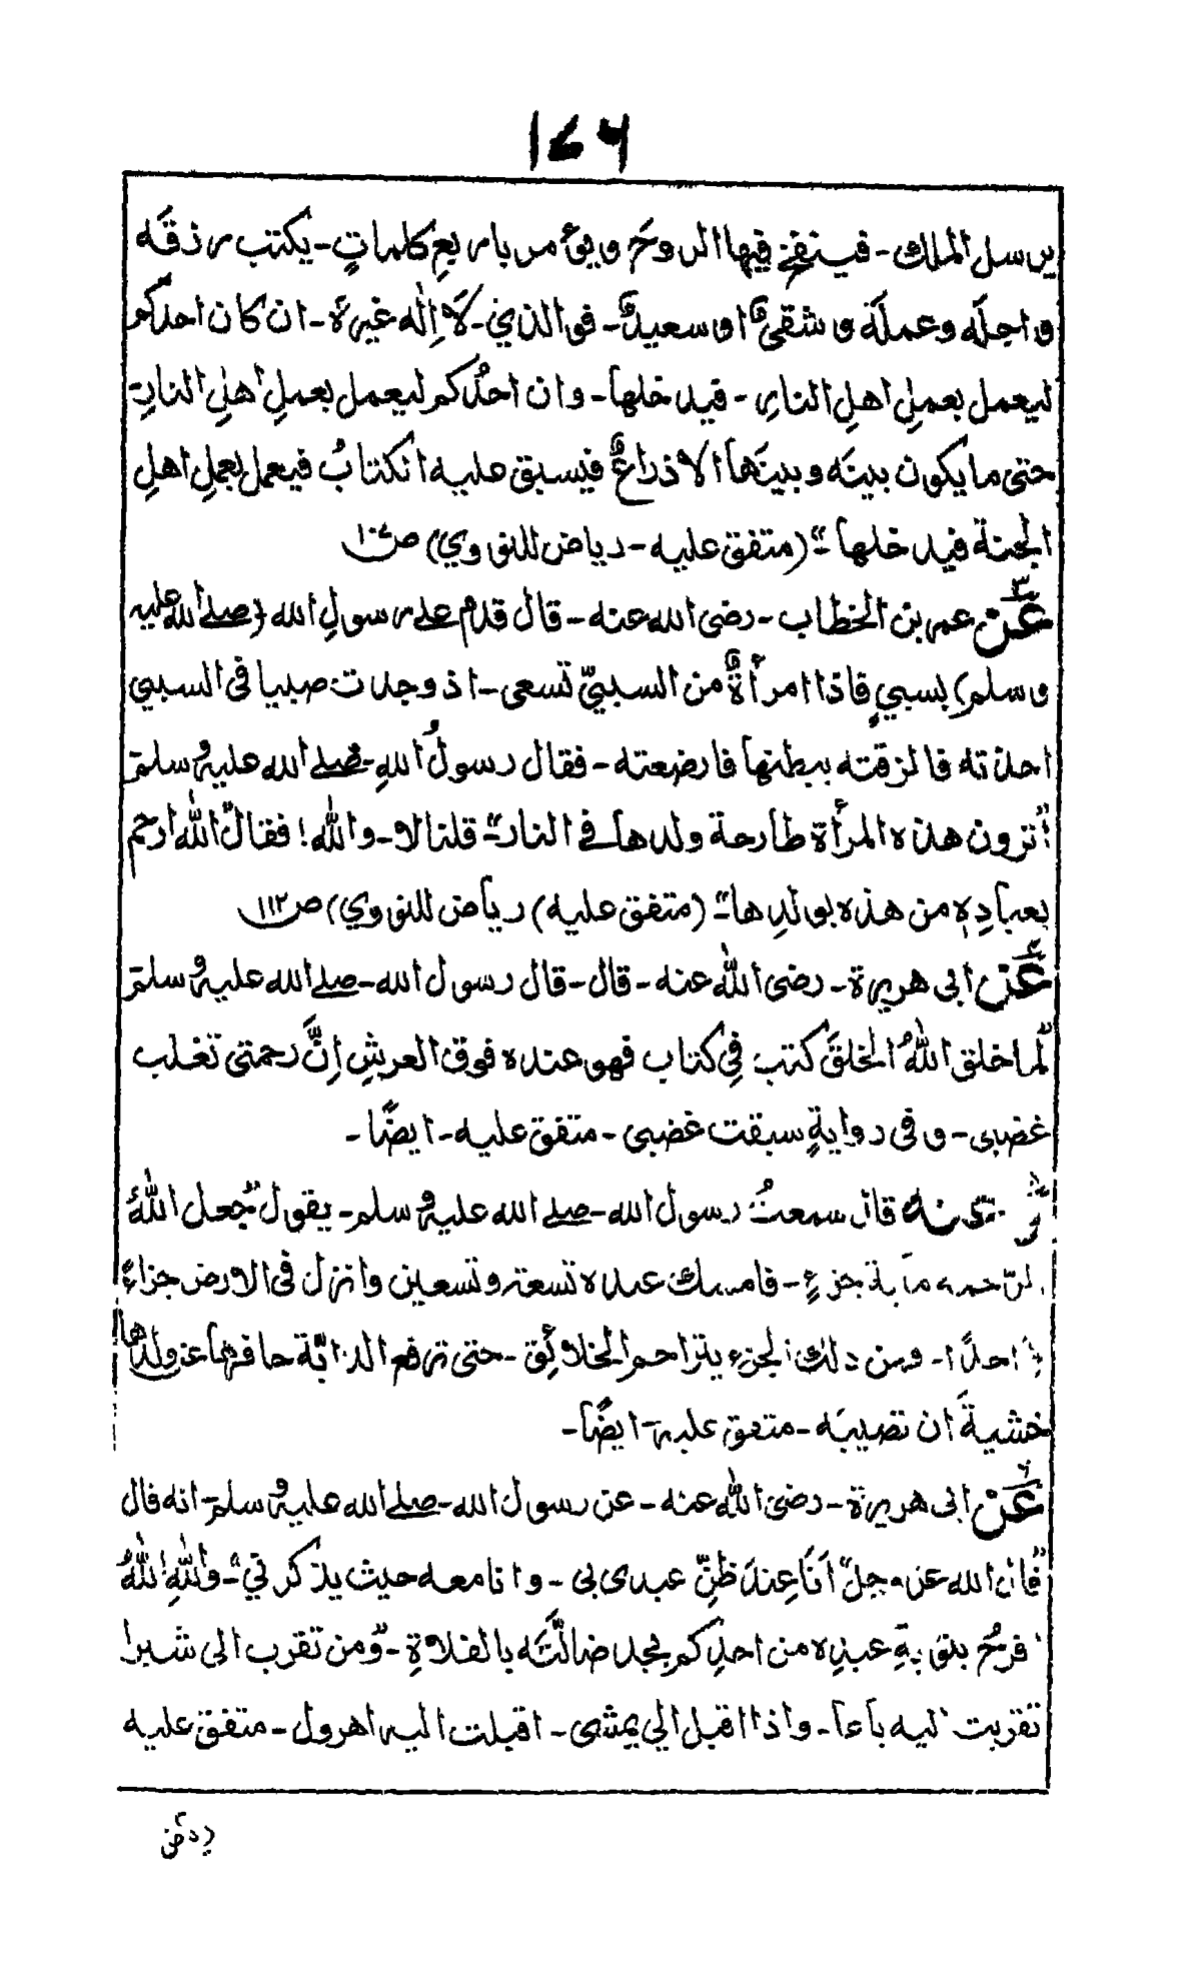 ۱۷۶
يرسل الملك - فينفخ فيها الروحَ ويؤمر باربعِ كلماتٍ - يكتب رزقَه
واجلَه وعملَه وشقيٌّ او سعيدٌ - فوالذي - لَا اِلٰه غيرهٗ - ان كان احدكم
ليعمل بعملِ اهلِ النارِ - فيدخلها - وان احدُكم ليعمل بعملِ اهلِ النارِ
حتى ما يكون بينَه وبينَها الا ذراعٌ فيسبق عليه الكتابُ فيعمل بعملِ اهلِ
الجنة فيدخلها ” (متفق عليه - رياض للنووي) ص۱۰۷
عَنْ عمر بن الخطاب - رضى الله عنه - قال قدم على رسولِ الله (صلے الله عليه
وسلم) بسبيٍ فاذا امرأةٌ من السبيّ تسعى - اذ وجدت صبيا فى السبي
اخذته فالزقته ببطنها فارضعته - فقال رسولُ اللهِ - صلے الله عليه وسلم
أترون هذه المرأة طارحة ولدها فے النار ” قلنا لا - والله! فقال ” الله ارحم
بعبادِهٖ من هذه بولدِها ” (متفق عليه) رياض للنووي) ص۱۱۲
عَنْ ابى هريرة - رضى الله عنه - قال - قال رسول الله - صلے الله عليه وسلم
لما خلق اللهُ الخلقَ كتب فِي كتاب فهو عنده فوق العرشِ اِنَّ رحمتى تغلب
غضبى - و فى روايةٍ سبقت غضبى - متفق عليه - ايضًا -
قال سمعتُ رسول الله - صلے الله عليه وسلم - يقول ” جعل اللهُ
مأية جزءٍ - فامسك عنده تسعة وتسعين وانزل فى الارض جزاءً
احدًا - ومن ذلك الجزء يتراحم الخلائق - حتى ترفع الدابّة حافرها عن ولدها
خشيةَ ان تصيبَه - متفق عليه - ايضًا -
عَنْ ابى هريرة - رضى الله عنه - عن رسول الله - صلے الله عليه وسلم - انه قال
قال الله عز وجل ” اَنَا عِندَ ظنِّ عبدى بى - وانا معه حيث يذكرني ” - واللهِ اللهُ
افرحُ بتوبةِ عبدِه من احدِكم يجد ضالَّتَه بالفلاةِ - ” ومن تقرب الى شبرا
تقربت اليه باعا - واذا اقبل الي يمشى - اقبلت اليه اهرول - متفق عليه